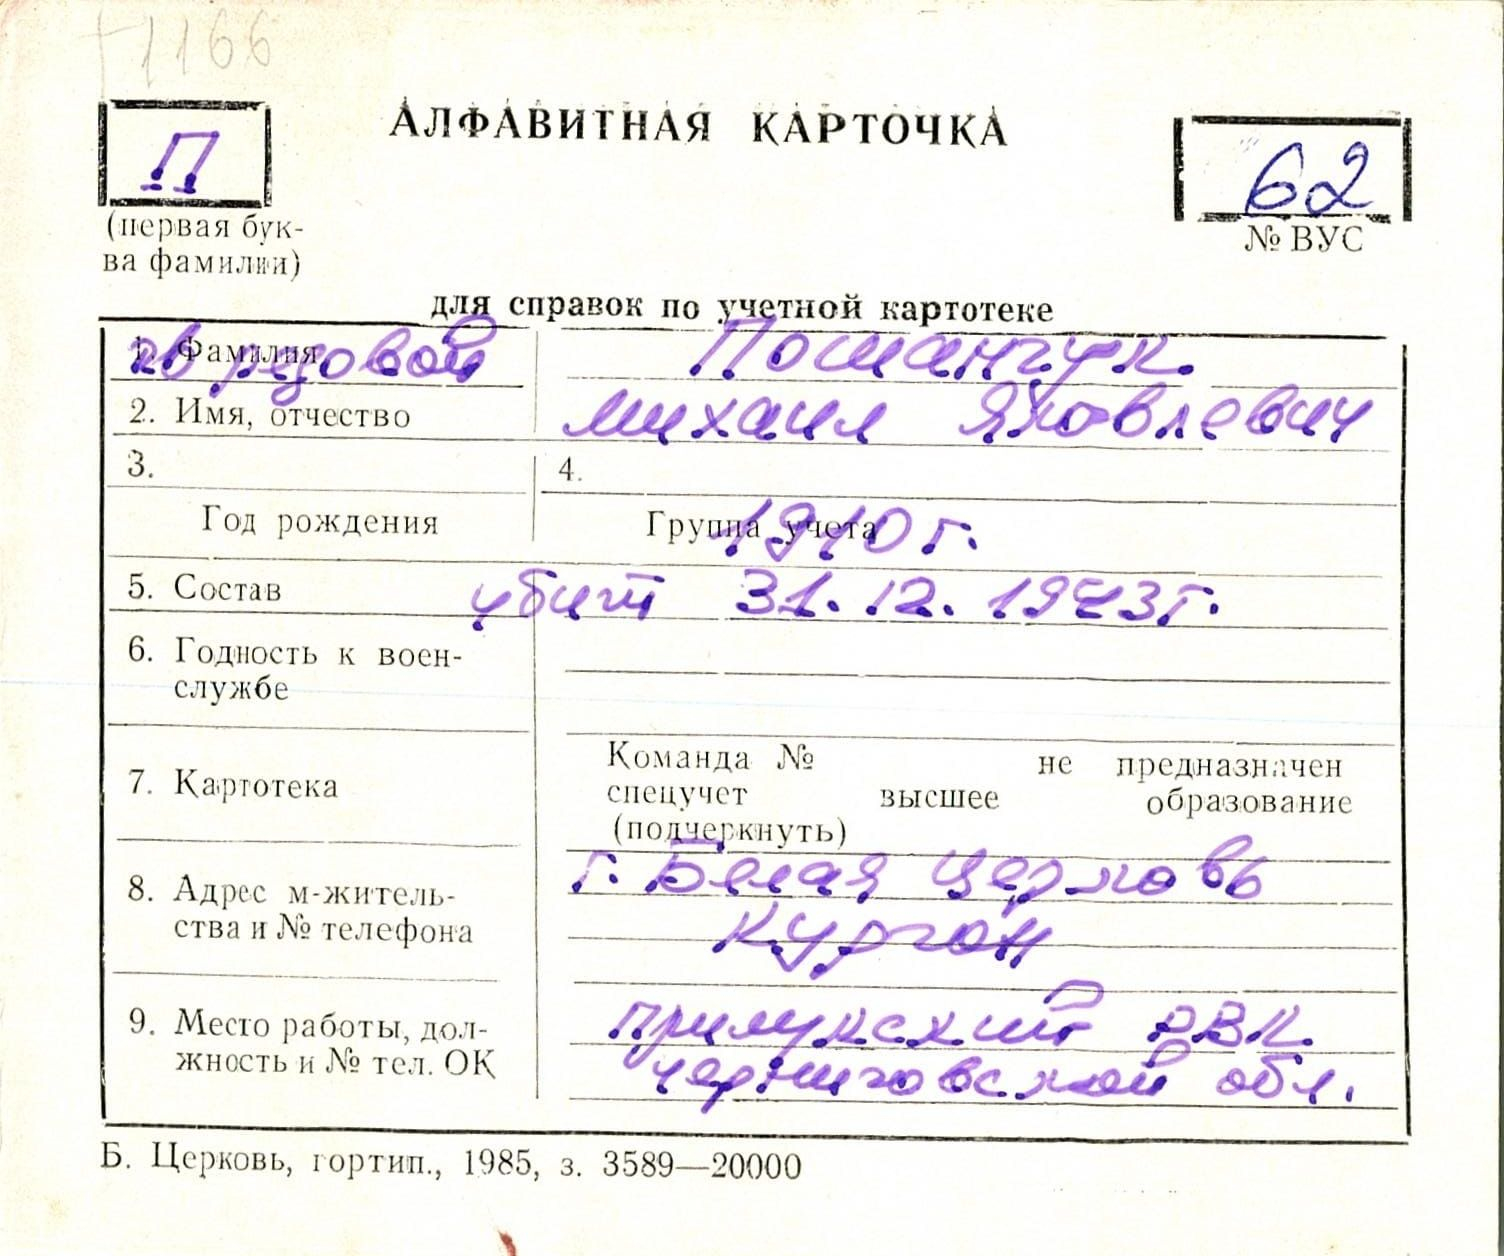 1166
АЛФАВИТНАЯ КАРТОЧКА
П
62
(первая бук-
ва фамилии)
№ ВУС
для справок по учетной картотеке
1. Фамилия
гв рядовой
Пошанчук.
2. Имя, отчество
Михаил Яковлевич
3.
4.
Год рождения
Группа учета
1910 г.
5. Состав
убит 31.12.1943 г.
6. Годность к воен-
службе
7. Картотека
Команда № не предназначен
спецучет высшее образование
(подчеркнуть)
8. Адрес м-житель-
ства и № телефона
г. Белая Церковь
Курган
9. Место работы, дол-
жность и № тел. ОК
Прилукский РВК.
Черниговской обл.
Б. Церковь, гортип., 1985, з. 3589—20000